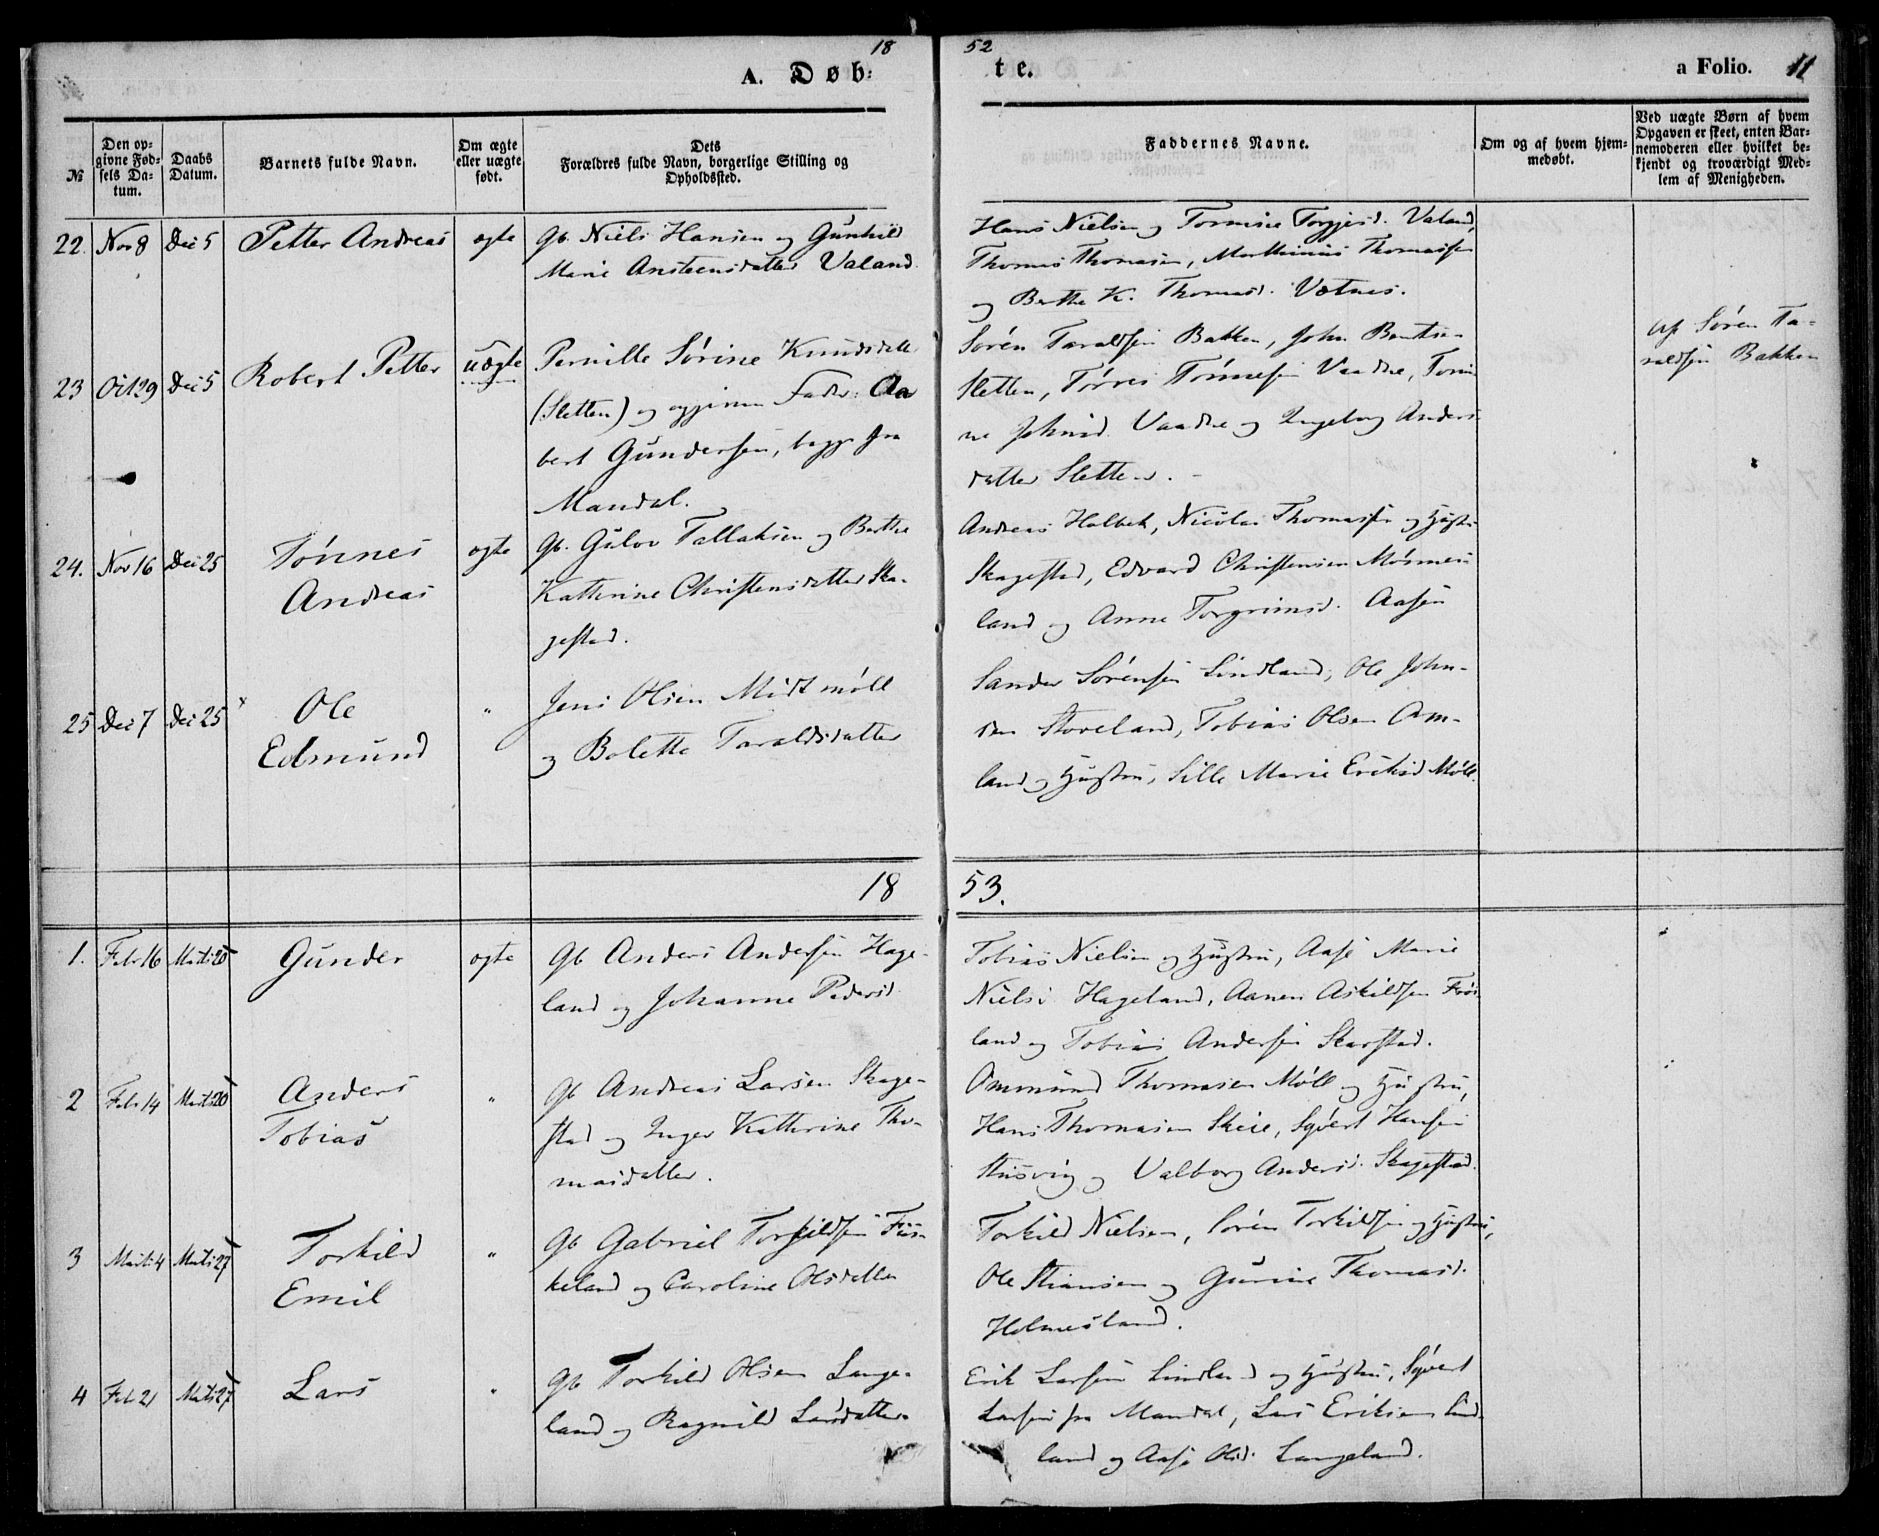 18 52
A. Døb- te. a Folio. 11
№
Den op-
givne Fød-
sels Da-
tum.
Daabs
Datum.
Barnets fulde Navn.
Om ægte
eller uægte
født.
Dets
Forældres fulde Navn, borgerlige Stilling og
Opholdssted.
Faddernes Navne.
Om og af hvem hjem-
medøbt.
Ved uægte Børn af hvem
Opgaven er skeet, enten Bar-
nemoderen eller hvilket be-
kjendt og troværdigt Med-
lem af Menigheden.
22. Nov 8 Dec 5 Petter Andreas ægte Gb. Niels Hansen og Gunhild
Marie Ansteensdatter Valand.
Hans Nielsen og Tomine Torgjesd. Valand,
Thomas Thomasen, Mathinius Thomassen
og Berthe K. Thomasd. Vatnes.
23 Oct 29 Dec 5 Robert Petter uægte Pernille Sørine Knudsdatt
(Sletten) og opgiven Fader: Aa
bert Gundersen, begge fra
Mandal.
Søren Taraldsen Bakken, John Bentse-
Sletten, Tørres Tønnesen Vaadne, Tomi
ne Johnsd. Vaadne og Ingeborg Anders
datter Sletten.
Af Søren Ta-
raldsen Bakken
24. Nov 16 Dec 25 Tønnes
Andreas
ægte Gb. Gulov Tallaksen og Berthe
Kathrine Christensdatter Ska-
gestad.
Andreas Holbek, Nicolai Thomassen og Hustru
Skagestad, Edvard Christensen Møsmes-
land og Anne Torgrimsd. Aasen
25 Dec 7 Dec 25 Ole
Edmund
" Jens Olsen Midtmøll
og Bolette Taraldsdatter
Sander Sørensen Lindland, Ole John-
sen Stoveland, Tobias Olsen Om-
land og Hustru, Sille Marie Eriksd Møll.
18 53.
1. Febr 16 Marts 20 Gunder ægte Gb Anders Andersen Hage-
land og Johanne Pedersd
Tobias Nielsen og Hustru, Aase Marie
Nielsd Hageland, Aanen Askildsen Frøs
land og Tobias Andersen Skarstad.
2 Febr 14 Marts 20 Anders
Tobias
" Gb Andreas Larsen Skage-
stad og Inger Kathrine Tho-
masdatter.
Ommund Thomasen Møll og Hustru,
Hans Thomasen Skeie, Syvert Hansen
og Valborg Andersd. Skagestad.
3 Marts 4 Marts 27 Torkild
Emil
" Gb Gabriel Torkildsen Fus-
keland og Caroline Olsdatter
Torkild Nielsen, Søren Torkildsen og Hustru,
Ole Stiansen og Gurine Thomasd.
Holmesland.
4 Feb 21 Marts 27 Lars " Gb Torkild Olsen Lange-
land og Ragnild Larsdatter
Erik Larsen Lindland og Hustru, Syvert
Larsen fra Mandal, Lars Eriksen Lind-
land og Aase Olsd. Langeland.